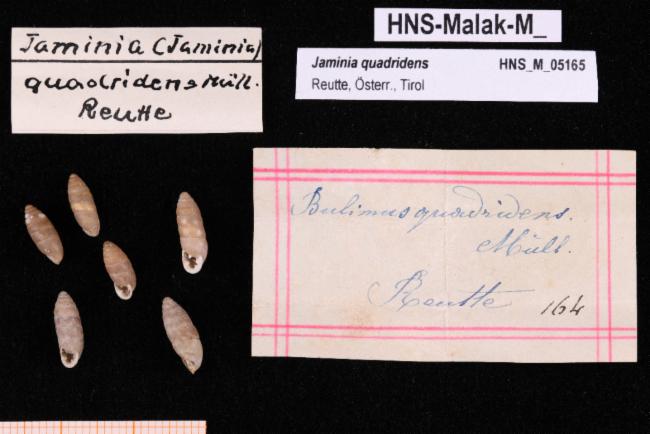 HNS-Malak-M_
Jaminia (Jaminia)
quadridens Müll.
Reutte
Jaminia quadridens HNS_M_05165
Reutte, Österr., Tirol
Bulimus quadridens.
Müll.
Reutte 164